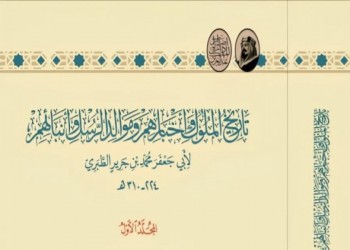 تاريخ الملوك وأخبارهم ومواليد الرسل وأنبائهم
لأبي جعفر محمد بن جرير الطبري
٢٢٤-٣١٠هـ
المجلد الأول